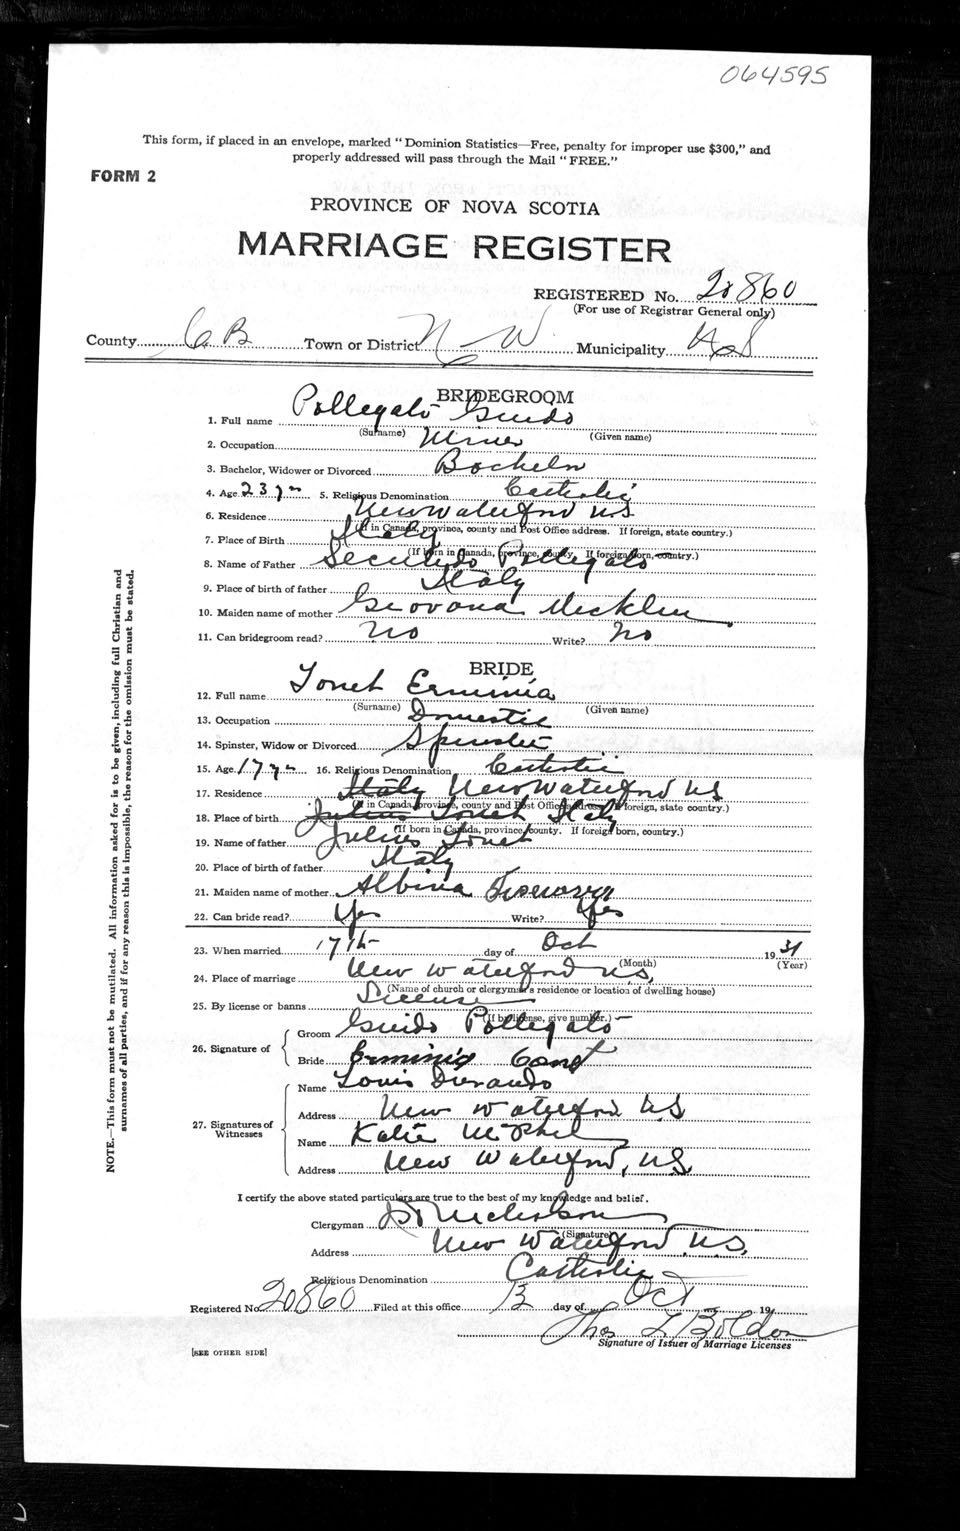 064595
This form, if placed in an envelope, marked "Dominion Statistics—Free, penalty for improper use $300," and
properly addressed will pass through the Mail "FREE."
FORM 2
PROVINCE OF NOVA SCOTIA
MARRIAGE REGISTER
REGISTERED No. 20860
(For use of Registrar General only)
County C B Town or District N W Municipality
BRIDEGROOM
1. Full name Pollegato Guido
(Surname) (Given name)
2. Occupation Miner
3. Bachelor, Widower or Divorced
4. Age 23 yrs 5. Religious Denomination Catholic
6. Residence New Waterford N.S.
(If in Canada, province, county and Post Office address. If foreign, state country.)
7. Place of Birth Italy
(If born in Canada, province, county. If foreign born, country.)
8. Name of Father Pollegato
9. Place of birth of father Italy
10. Maiden name of mother Geovana
11. Can bridegroom read? No Write? No
BRIDE
12. Full name Tonet Erminia
(Surname) (Given name)
13. Occupation Domestic
14. Spinster, Widow or Divorced Spinster
15. Age 17 yrs 16. Religious Denomination Catholic
17. Residence Italy New Waterford N S
(If in Canada, province, county and Post Office address. If foreign, state country.)
18. Place of birth Julius Tonet Italy
(If born in Canada, province, county. If foreign born, country.)
19. Name of father Julius Tonet
20. Place of birth of father Italy
21. Maiden name of mother Albina
22. Can bride read? Yes Write? Yes
23. When married 17th day of Oct 1931
(Month) (Year)
24. Place of marriage New Waterford N.S.
(Name of church or clergyman's residence or location of dwelling house)
25. By license or banns License
(If by license, give number.)
26. Signature of
Groom Guido Pollegato
Bride Erminia
27. Signatures of Witnesses
Name Louis Durando
Address New Waterford N S
Name Katie
Address New Waterford, N.S.
I certify the above stated particulars are true to the best of my knowledge and belief.
Clergyman
(Signature)
Address New Waterford N.S.
Religious Denomination Catholic
Registered No. 20860 Filed at this office 13 day of Oct 19
Thos L Boldon
Signature of Issuer of Marriage Licenses
[SEE OTHER SIDE]
NOTE.—This form must not be mutilated. All information asked for is to be given, including full Christian and
surnames of all parties, and if for any reason this is impossible, the reason for the omission must be stated.